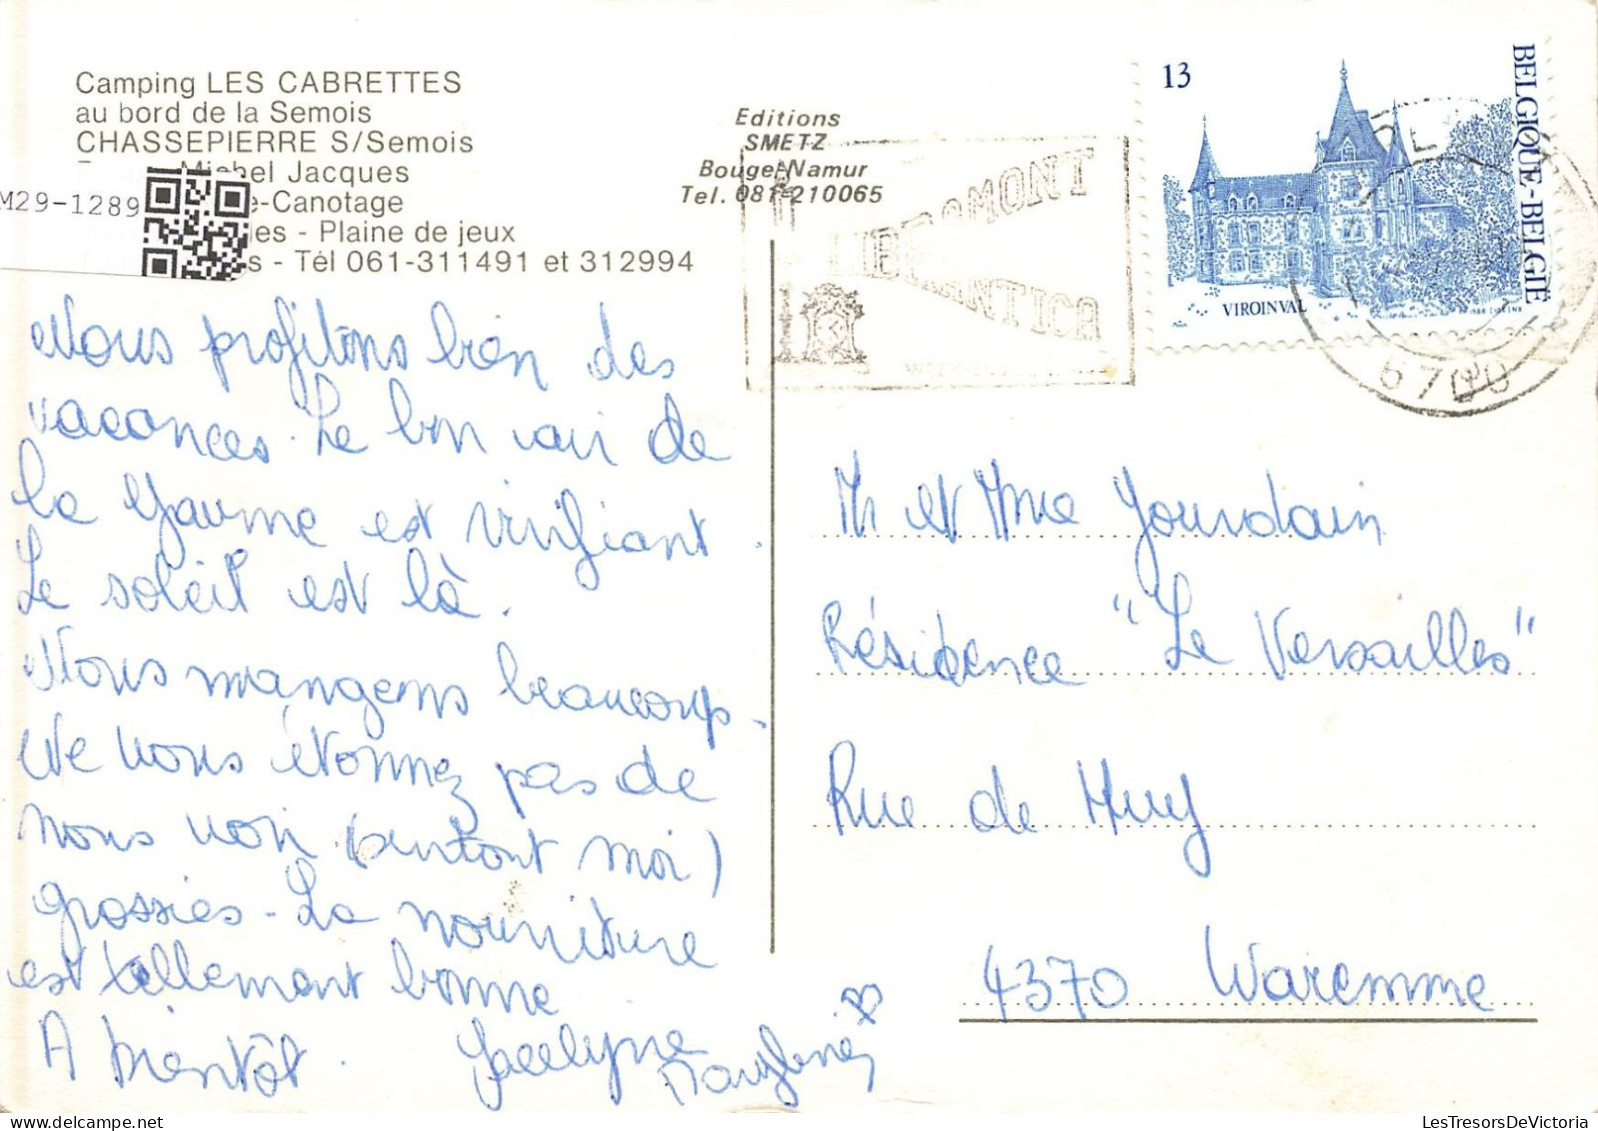 Camping LES CABRETTES
au bord de la Semois
CHASSEPIERRE S/Semois
Michel Jacques
M29-1289
e-Canotage
les - Plaine de jeux
s - Tél 061-311491 et 312994
Editions
SMETZ
Bouge/Namur
Tel. 081-210065
LIBRAMONT
ROMANTICA
WEEK-END
13
BELGIQUE-BELGIË
VIROINVAL
6700
Nous profitons bien des
vacances. Le bon air de
la Gaume est vivifiant.
Le soleil est là.
Nous mangeons beaucoup.
Ne vous étonnez pas de
nous voir (surtout moi)
grossies - La nourriture
est tellement bonne
A bientôt. Jocelyne
M et Mme Jourdain
Résidence "Le Versailles"
Rue de Huy
4370 Waremme
LesTresorsDeVictoria.com